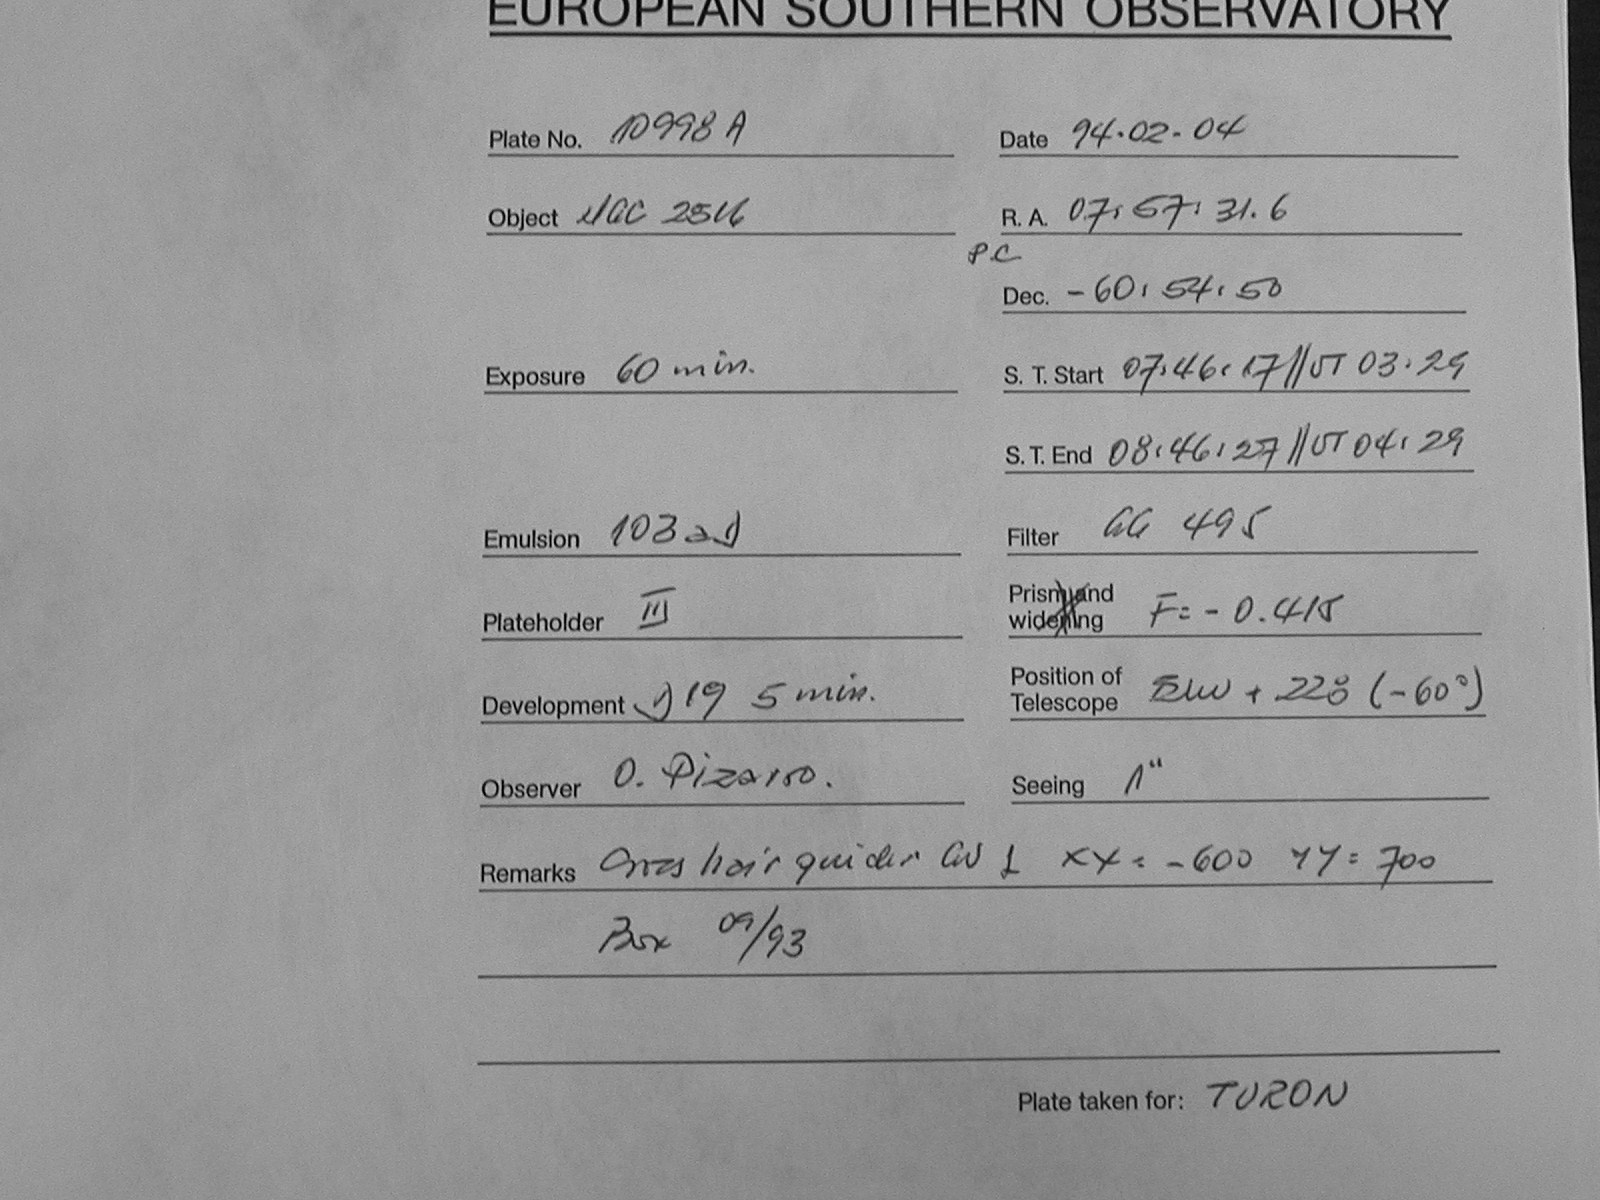 EUROPEAN SOUTHERN OBSERVATORY
Plate No. 10998 A
Date 94.02.04
Object NGC 2516
R. A. 07:57:31.6
P.C
Dec. -60:54:50
Exposure 60 min.
S. T. Start 07:46:17//UT 03:29
S. T. End 08:46:27//UT 04:29
Emulsion 103 aD
Filter GG 495
Plateholder III
Prism and widening F = - 0.415
Development D19 5 min.
Position of Telescope + 228 (-60°)
Observer O. Pizarro.
Seeing 1"
Remarks Cross hair guider GW 1 XX = -600 YY = 700
Box 09/93
Plate taken for: TURON